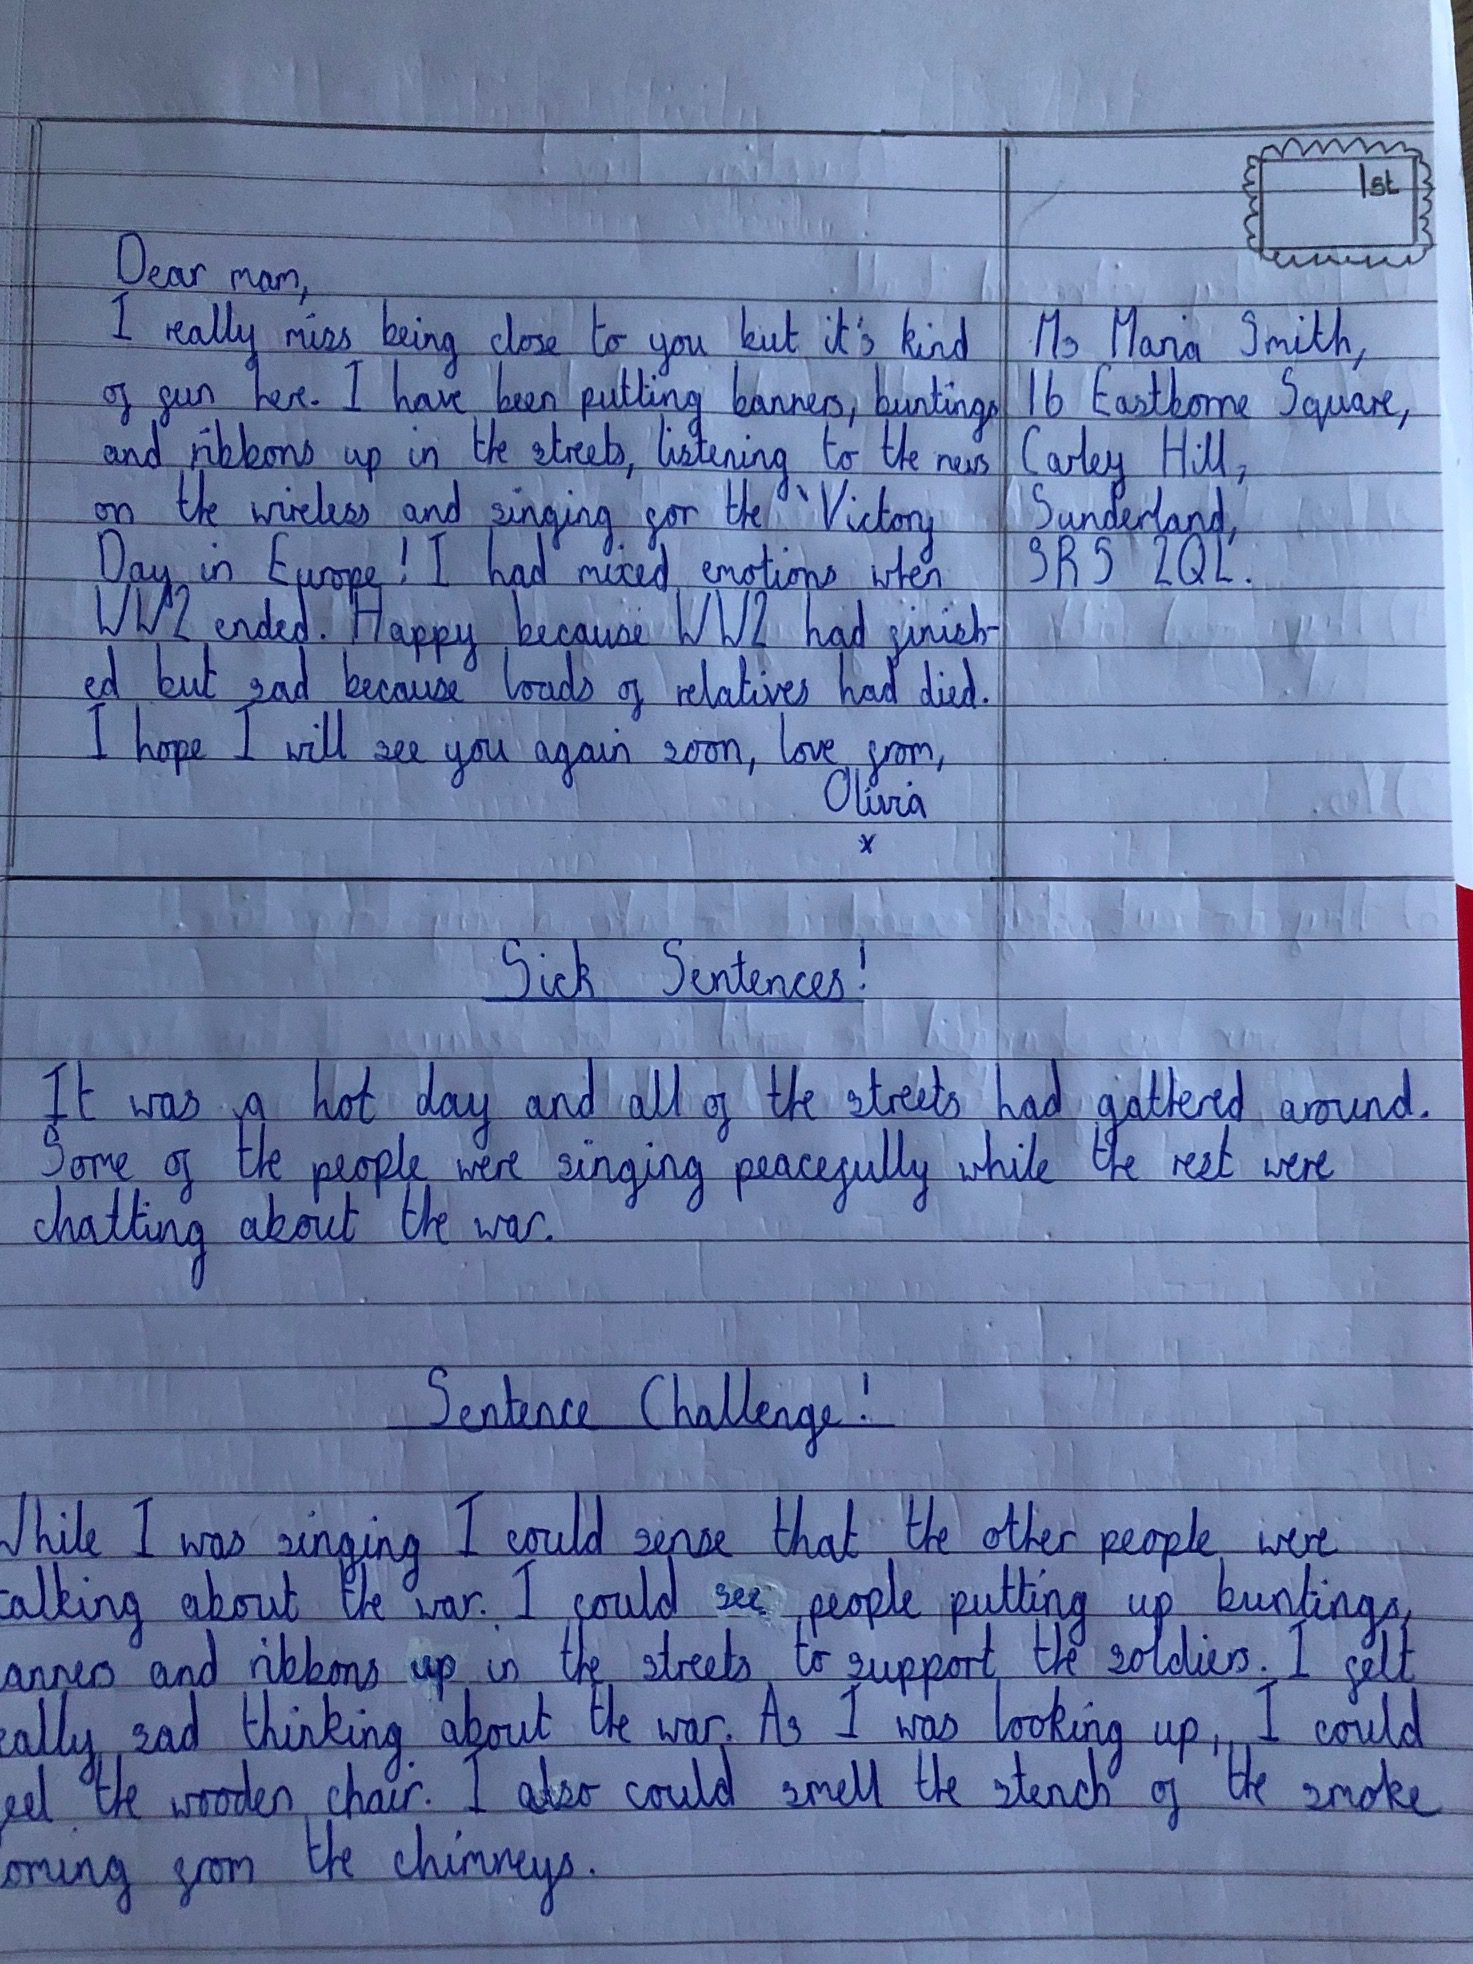 1st
Dear mam,
I really miss being close to you but it's kind
of fun here. I have been putting banners, buntings
and ribbons up in the streets, listening to the news
on the wireless and singing for the 'Victory
Day in Europe! I had mixed emotions when
WW2 ended. Happy because WW2 had finish-
ed but sad because loads of relatives had died.
I hope I will see you again soon, love from,
Olivia
x
Ms Maria Smith,
16 Eastborne Square,
Carley Hill,
Sunderland,
SR5 2QL.
Sick Sentences!
It was a hot day and all of the streets had gathered around.
Some of the people were singing peacefully while the rest were
chatting about the war.
Sentence Challenge!
While I was singing I could sense that the other people were
talking about the war. I could see people putting up buntings,
anners and ribbons up in the streets to support the soldiers. I felt
eally sad thinking about the war. As I was looking up, I could
eel the wooden chair. I also could smell the stench of the smoke
oming from the chimneys.